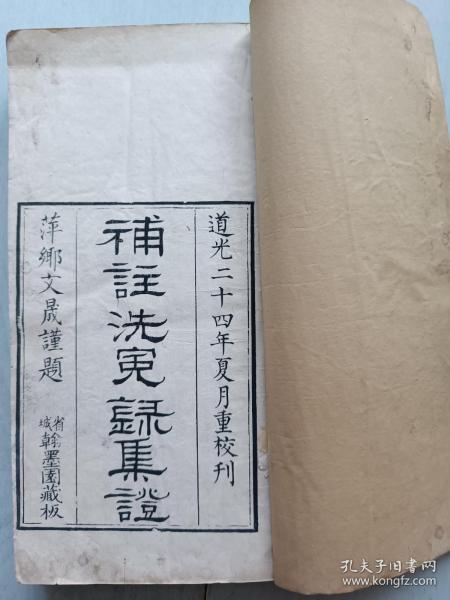 道光二十四年夏月重校刊
補註洗冤録集證
萍鄉文晟謹題
省城翰墨園藏板
孔夫子旧书网
www.kongfz.com